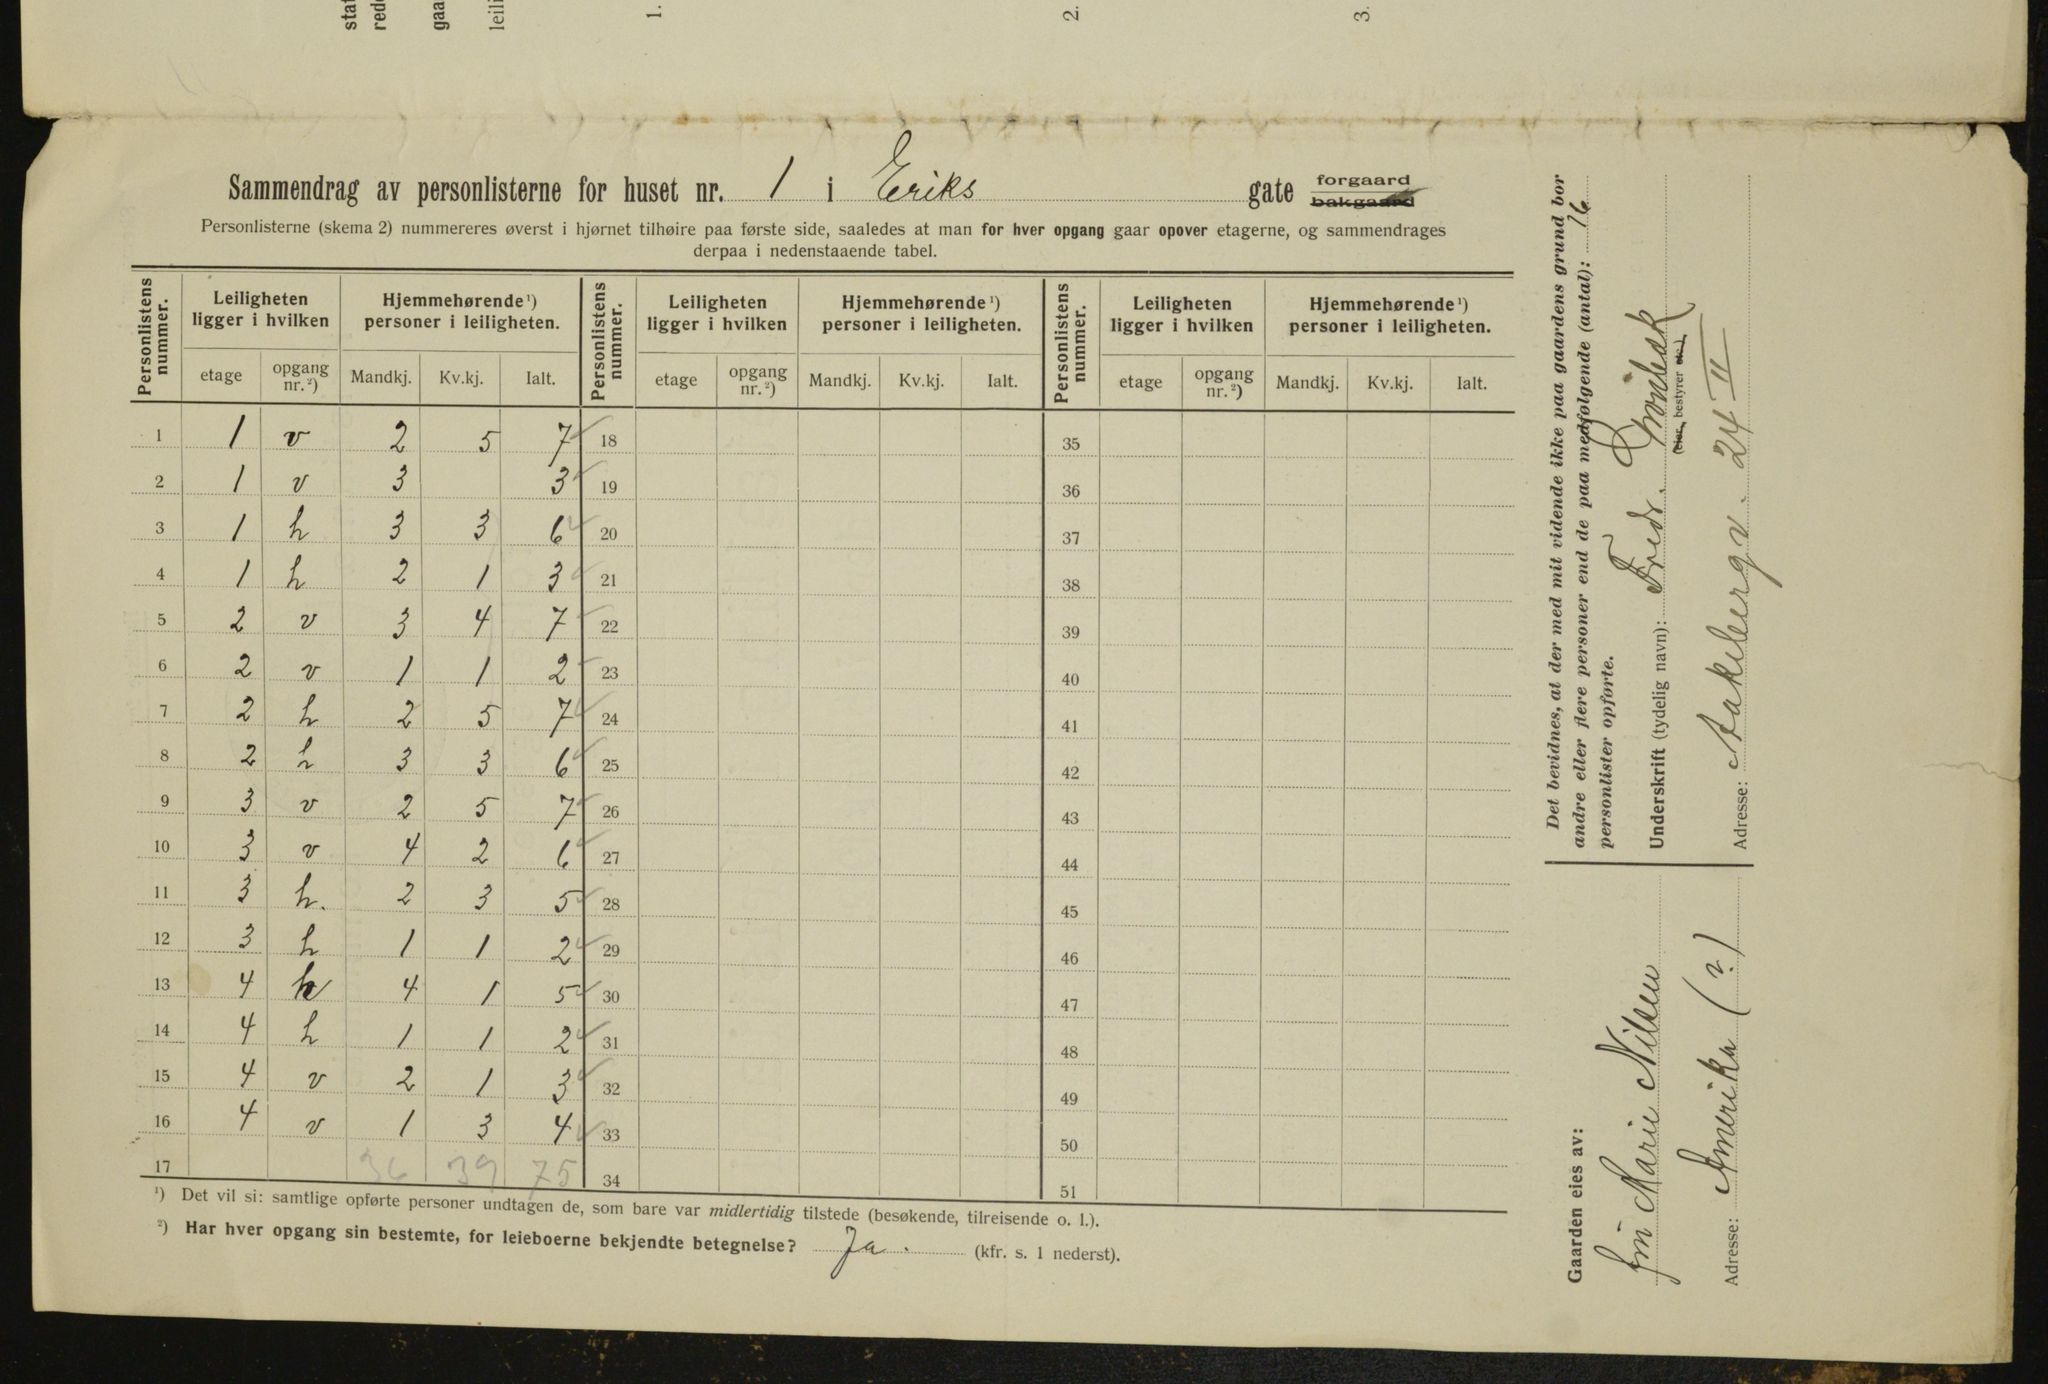 stat
rede
gaa
leili
1.
2.
3.
Sammendrag av personlisterne for huset nr. 1 i Eriks gate forgaard
bakgaard
Personlisterne (skema 2) nummereres øverst i hjørnet tilhøire paa første side, saaledes at man for hver opgang gaar opover etagerne, og sammendrages
derpaa i nedenstaaende tabel.
Personlistens nummer. Leiligheten ligger i hvilken Hjemmehørende ¹) personer i leiligheten. Personlistens nummer. Leiligheten ligger i hvilken Hjemmehørende ¹) personer i leiligheten. Personlistens nummer. Leiligheten ligger i hvilken Hjemmehørende ¹) personer i leiligheten.
etage opgang nr. ²) Mandkj. Kv.kj. Ialt. etage opgang nr. ²) Mandkj. Kv.kj. Ialt. etage opgang nr. ²) Mandkj. Kv.kj. Ialt.
1 1 v 2 5 7 18 35
2 1 v 3 3 19 36
3 1 h 3 3 6 20 37
4 1 h 2 1 3 21 38
5 2 v 3 4 7 22 39
6 2 v 1 1 2 23 40
7 2 h 2 5 7 24 41
8 2 h 3 3 6 25 42
9 3 v 2 5 7 26 43
10 3 v 4 2 6 27 44
11 3 h. 2 3 5 28 45
12 3 h 1 1 2 29 46
13 4 h 4 1 5 30 47
14 4 h 1 1 2 31 48
15 4 v 2 1 3 32 49
16 4 v 1 3 4 33 50
17 36 39 75 34 51
¹) Det vil si: samtlige opførte personer undtagen de, som bare var midlertidig tilstede (besøkende, tilreisende o. l.).
²) Har hver opgang sin bestemte, for leieboerne bekjendte betegnelse? Ja. (kfr. s. 1 nederst).
Det bevidnes, at der med mit vidende ikke paa gaardens grund bor
andre eller flere personer end de paa medfølgende (antal): 16
personlister opførte.
Underskrift (tydelig navn): Fredr.
(eier, bestyrer etc.)
Adresse: Aakebergv. 24 II
Gaarden eies av:
Marie Nilsen
Adresse: Amerika (?)